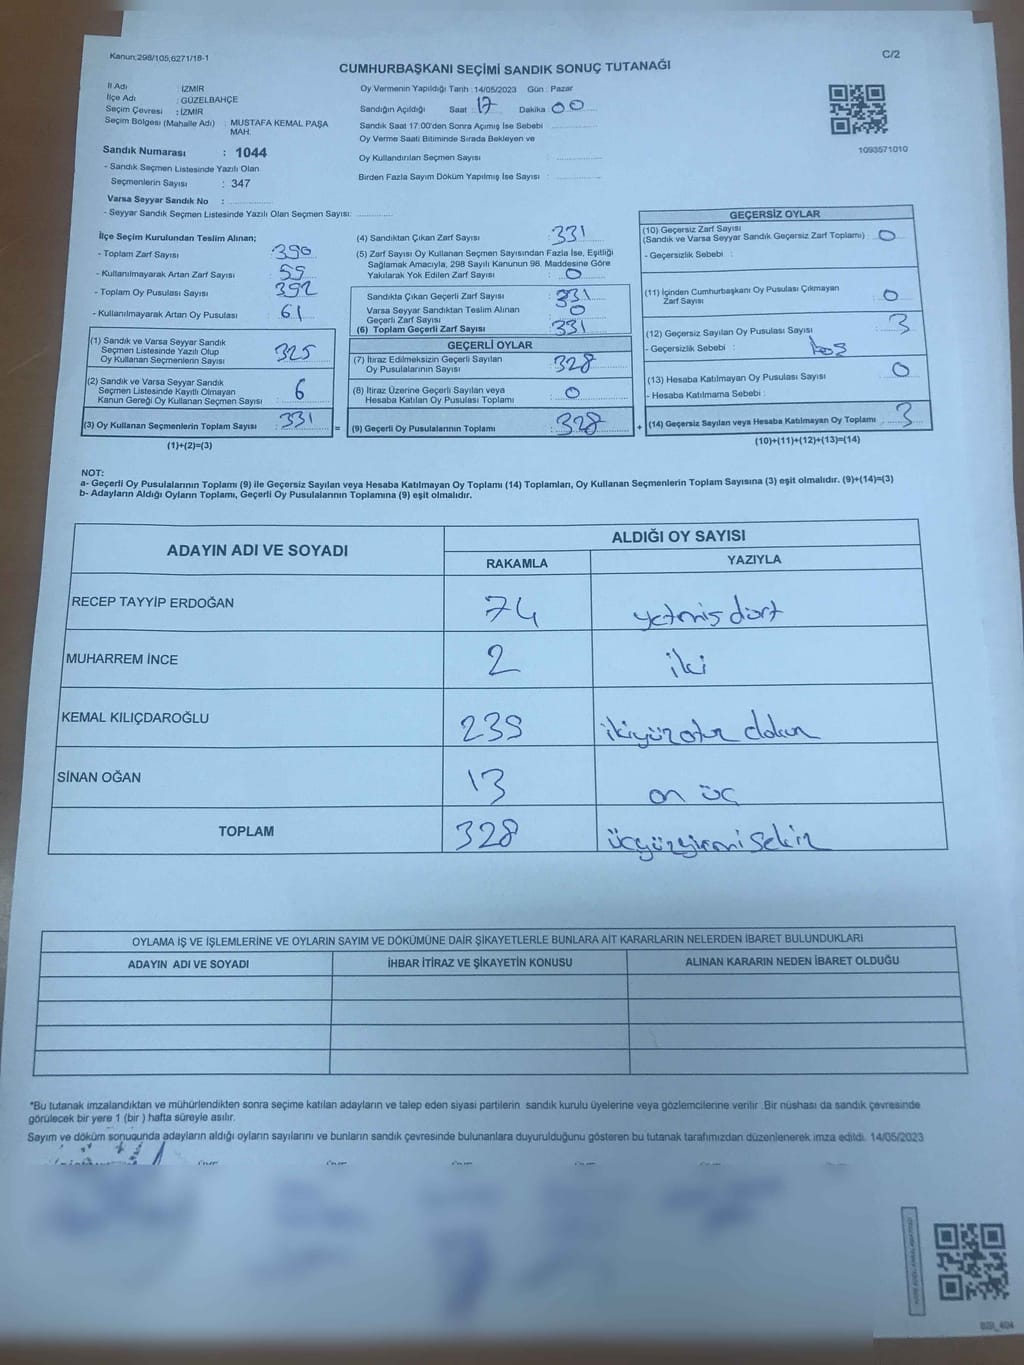 Kanun;298/105;6271/18-1
C/2
CUMHURBAŞKANI SEÇİMİ SANDIK SONUÇ TUTANAĞI
İl Adı : İZMİR
İlçe Adı : GÜZELBAHÇE
Seçim Çevresi : İZMİR
Seçim Bölgesi (Mahalle Adı) : MUSTAFA KEMAL PAŞA
MAH.
Sandık Numarası : 1044
- Sandık Seçmen Listesinde Yazılı Olan
Seçmenlerin Sayısı : 347
Varsa Seyyar Sandık No :
- Seyyar Sandık Seçmen Listesinde Yazılı Olan Seçmen Sayısı:
Oy Vermenin Yapıldığı Tarih : 14/05/2023 Gün : Pazar
Sandığın Açıldığı Saat : 17 Dakika 00
Sandık Saat 17:00'den Sonra Açımış İse Sebebi :
Oy Verme Saati Bitiminde Sırada Bekleyen ve
Oy Kullandırılan Seçmen Sayısı :
Birden Fazla Sayım Döküm Yapılmış İse Sayısı :
1093571010
İlçe Seçim Kurulundan Teslim Alınan;
- Toplam Zarf Sayısı : 390
- Kullanılmayarak Artan Zarf Sayısı : 59
- Toplam Oy Pusulası Sayısı : 392
- Kullanılmayarak Artan Oy Pusulası : 61
(1) Sandık ve Varsa Seyyar Sandık
Seçmen Listesinde Yazılı Olup
Oy Kullanan Seçmenlerin Sayısı : 325
(2) Sandık ve Varsa Seyyar Sandık
Seçmen Listesinde Kayıtlı Olmayan
Kanun Gereği Oy Kullanan Seçmen Sayısı : 6
(3) Oy Kullanan Seçmenlerin Toplam Sayısı : 331
(1)+(2)=(3)
(4) Sandıktan Çıkan Zarf Sayısı : 331
(5) Zarf Sayısı Oy Kullanan Seçmen Sayısından Fazla İse, Eşitliği
Sağlamak Amacıyla, 298 Sayılı Kanunun 98. Maddesine Göre
Yakılarak Yok Edilen Zarf Sayısı : 0
Sandıkta Çıkan Geçerli Zarf Sayısı : 331
Varsa Seyyar Sandıktan Teslim Alınan
Geçerli Zarf Sayısı : 0
(6) Toplam Geçerli Zarf Sayısı : 331
GEÇERLİ OYLAR
(7) İtiraz Edilmeksizin Geçerli Sayılan
Oy Pusulalarının Sayısı : 328
(8) İtiraz Üzerine Geçerli Sayılan veya
Hesaba Katılan Oy Pusulası Toplamı : 0
= (9) Geçerli Oy Pusulalarının Toplamı : 328
GEÇERSİZ OYLAR
(10) Geçersiz Zarf Sayısı
(Sandık ve Varsa Seyyar Sandık Geçersiz Zarf Toplamı) : 0
- Geçersizlik Sebebi :
(11) İçinden Cumhurbaşkanı Oy Pusulası Çıkmayan
Zarf Sayısı : 0
(12) Geçersiz Sayılan Oy Pusulası Sayısı : 3
- Geçersizlik Sebebi : boş
(13) Hesaba Katılmayan Oy Pusulası Sayısı : 0
- Hesaba Katılmama Sebebi :
+ (14) Geçersiz Sayılan veya Hesaba Katılmayan Oy Toplamı : 3
(10)+(11)+(12)+(13)=(14)
NOT:
a- Geçerli Oy Pusulalarının Toplamı (9) ile Geçersiz Sayılan veya Hesaba Katılmayan Oy Toplamı (14) Toplamları, Oy Kullanan Seçmenlerin Toplam Sayısına (3) eşit olmalıdır. (9)+(14)=(3)
b- Adayların Aldığı Oyların Toplamı, Geçerli Oy Pusulalarının Toplamına (9) eşit olmalıdır.
ADAYIN ADI VE SOYADI ALDIĞI OY SAYISI
RAKAMLA YAZIYLA
RECEP TAYYİP ERDOĞAN 74 yetmiş dört
MUHARREM İNCE 2 iki
KEMAL KILIÇDAROĞLU 239 ikiyüz otuz dokuz
SİNAN OĞAN 13 on üç
TOPLAM 328 üçyüzyirmi sekiz
OYLAMA İŞ VE İŞLEMLERİNE VE OYLARIN SAYIM VE DÖKÜMÜNE DAİR ŞİKAYETLERLE BUNLARA AİT KARARLARIN NELERDEN İBARET BULUNDUKLARI
ADAYIN ADI VE SOYADI İHBAR İTİRAZ VE ŞİKAYETİN KONUSU ALINAN KARARIN NEDEN İBARET OLDUĞU
*Bu tutanak imzalandıktan ve mühürlendikten sonra seçime katılan adayların ve talep eden siyasi partilerin sandık kurulu üyelerine veya gözlemcilerine verilir .Bir nüshası da sandık çevresinde
görülecek bir yere 1 (bir ) hafta süreyle asılır.
Sayım ve döküm sonuçunda adayların aldığı oyların sayılarını ve bunların sandık çevresinde bulunanlara duyurulduğunu gösteren bu tutanak tarafımızdan düzenlenerek imza edildi. 14/05/2023